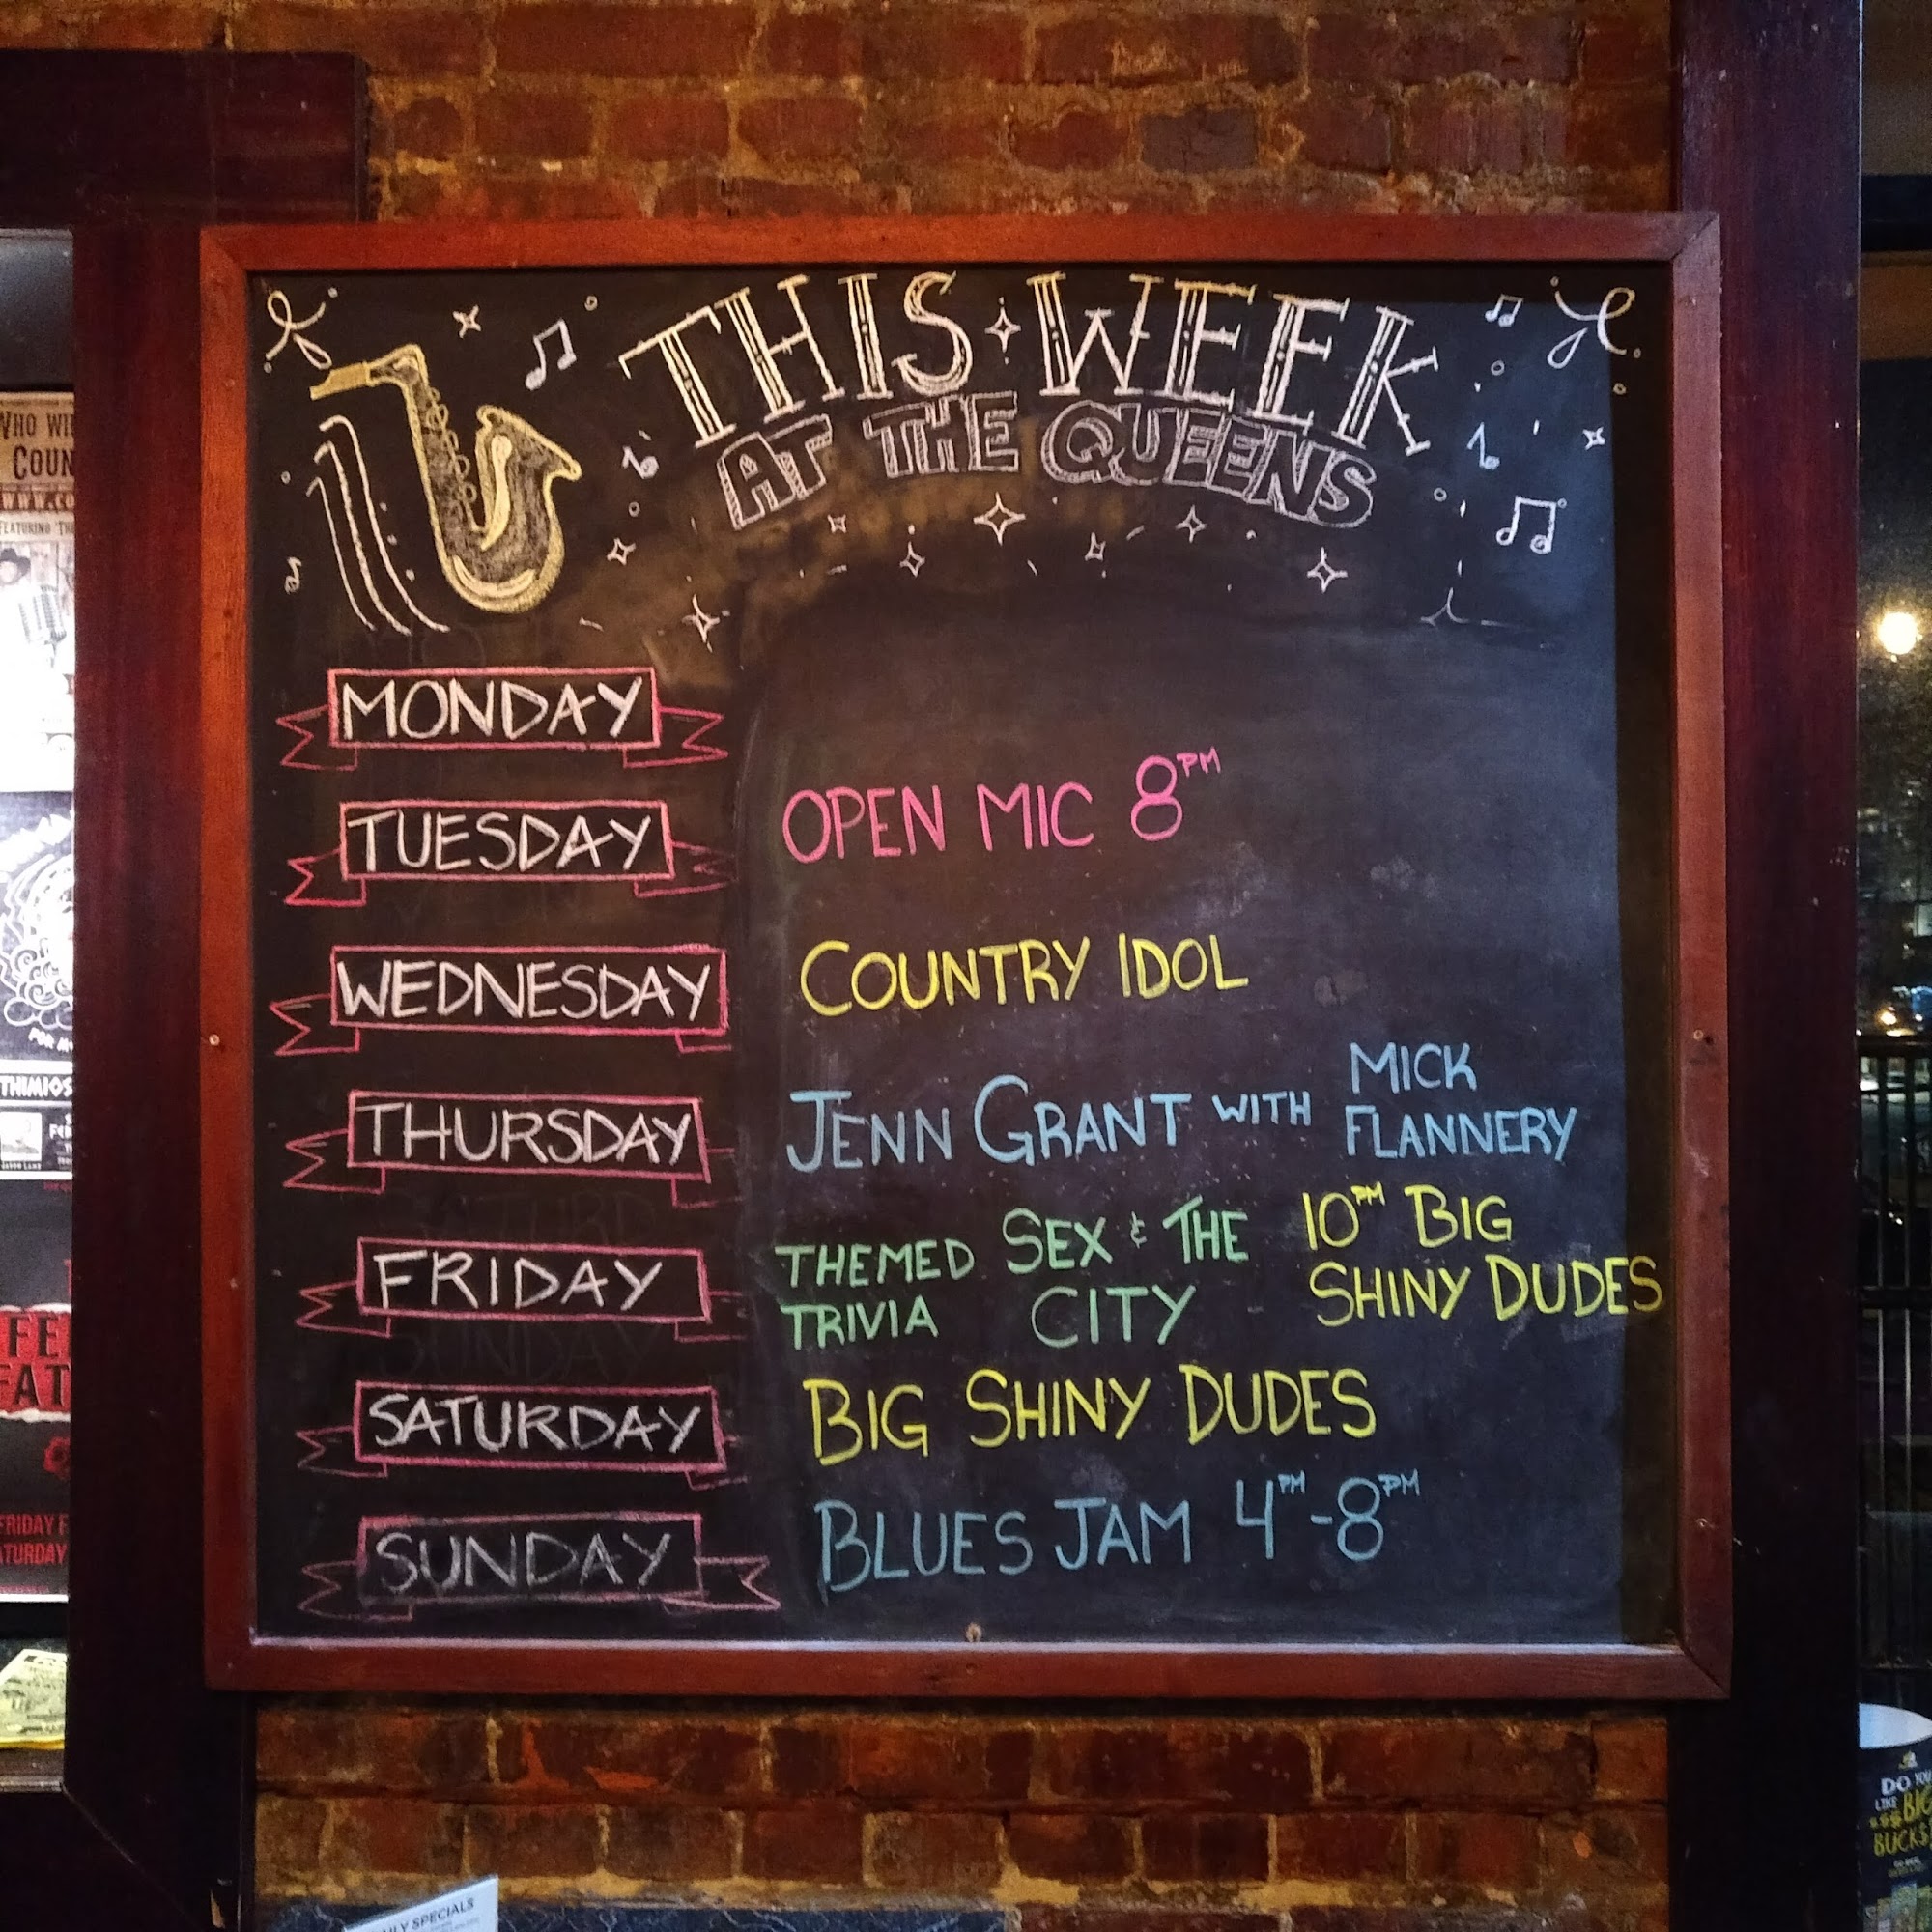 THIS WEEK
AT THE QUEENS
MONDAY
TUESDAY
OPEN MIC 8PM
WEDNESDAY
COUNTRY IDOL
THURSDAY
JENN GRANT WITH MICK
FLANNERY
FRIDAY
THEMED SEX & THE
TRIVIA CITY
10PM BIG
SHINY DUDES
SATURDAY
BIG SHINY DUDES
SUNDAY
BLUES JAM 4PM-8PM
WHO
COUN
FEATURING
THIMIOS
FE
FAT
FRIDAY
SPECIALS
DO YOU
LIKE BIG
BUCKS